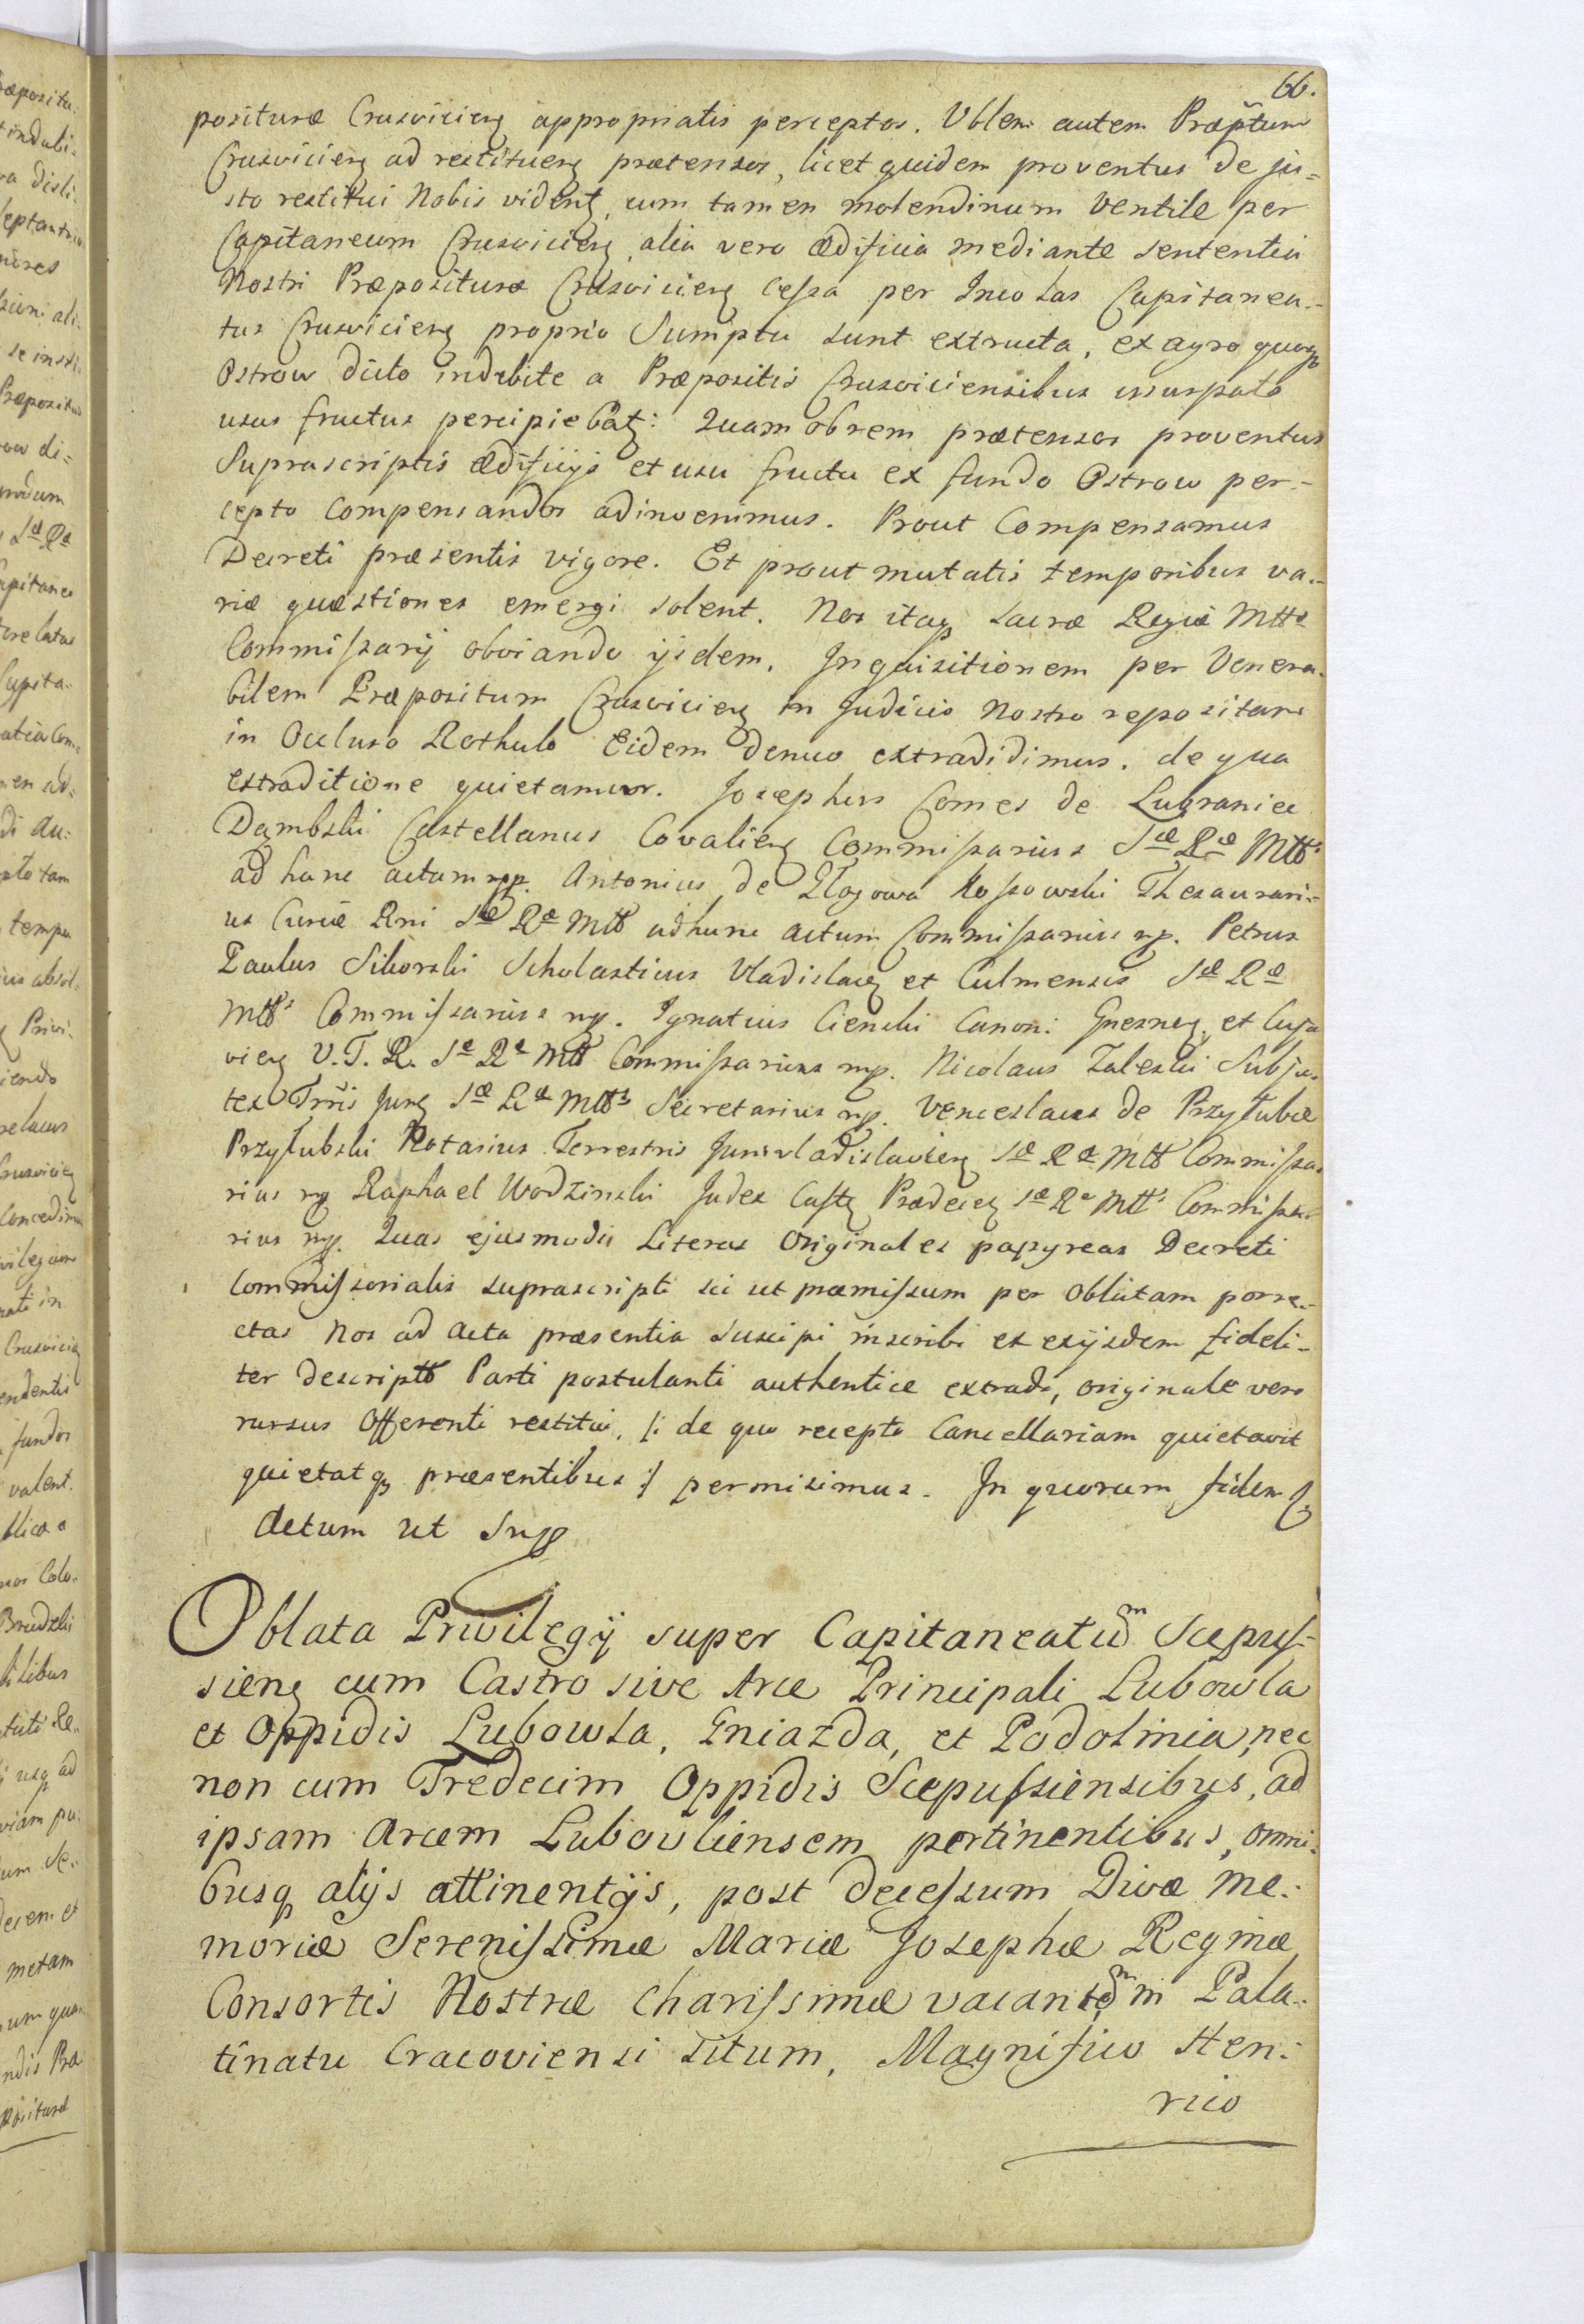 66.
posituræ Crusvicieng appropriatis perceptos. Vblem autem Præptum
Crusvicieng ad restitueng prætensos, licet quidem proventus de ju=
sto restitui Nobis videntg, cum tamen molendinum ventile per
Capitaneum Crusvicieng, alia vero ædificia mediante sententia
Nostri Præposituræ Crusvicieng cessa per Incolas Capitanea-
tus Crusvicieng proprio Sumptu sunt extructa, ex agro quoqz
Ostrow dicto indebite a Præpositis Crusviciensibus usurpato
usus fructus percipiebatg: Quamobrem prætensos proventus
Suprascriptis ædificijs et usu fructu ex fundo Ostrow per-
cepto compensandos adinvenimus. Prout Compensamus
Decreti præsentis vigore. Et prout mutatis temporibus va-
riæ quæstiones emergi solent. Nos itaqz Sacræ Regiæ Mttis
Commissarij obviando ijsdem, Inquisitionem per Venera-
bilem Præpositum Crusvicieng in Judicio Nostro repositam
in Occluso Rothulo Eidem denuo extradidimus. de qua
extraditione quietamur. Josephus Comes de Lubraniec
Dąmbski Castellanus Covalieng Commissarius Sæ Ræ Mttis
ad hunc actum mp. Antonius de Głogowa Kossowski Thesaurari-
us Curiæ Rni Sæ Ræ Mtt adhunc actum Commissarius mp. Petrus
Paulus Sikorski Scholasticus Vladislaug et Culmensis Sæ Ræ
Mttis Commissarius mp. Ignatius Cienski Canon: Gnesneng. et Cuja
vieng V. J. R. Sæ Ræ Mtt Commissarius mp. Nicolaus Zaleski Subju-
dex Trris Jung Sæ Ræ Mttis Secretarius mp. Venceslaus de Przyłubie
Przyłubski Notarius Terrestris Junivladislavieng Sæ Ræ Mtt Commissa-
rius mp Raphael Wodzinski Judex Castg Prædeceg Sæ Ræ Mttis Commissa-
rius mp. Quas ejusmodi Literas Originales papyreas Decreti
Commissorialis suprascripti sic ut præmissum per Oblatam porre-
ctas Nos ad Acta præsentia suscipi inscribi et exijsdem fideli-
ter descriptas Parti postulanti authentice extradi, originale vero
rursus Offerenti restitui, /: de quo recepto Cancellariam quietavit
quietatqz præsentibus :/ permisimus. In quorum fidem
Actum ut Supp
Oblata Privilegij super Capitaneatum Scepus-
sieng cum Castro sive Arce Principali Lubowla
et Oppidis Lubowla, Gniazda, et Podolinia, nec
non cum Tredecim Oppidis Scepussiensibus, ad
ipsam Arcem Lubowliensem pertinentibus, omni-
busqz alijs attinentijs, post decessum Divæ me-
moriæ Serenissimæ Mariæ Josephæ Reginæ
Consortis Nostræ Charissimæ vacantem in Pala-
tinatu Cracoviensi situm, Magnifico Hen-
rico